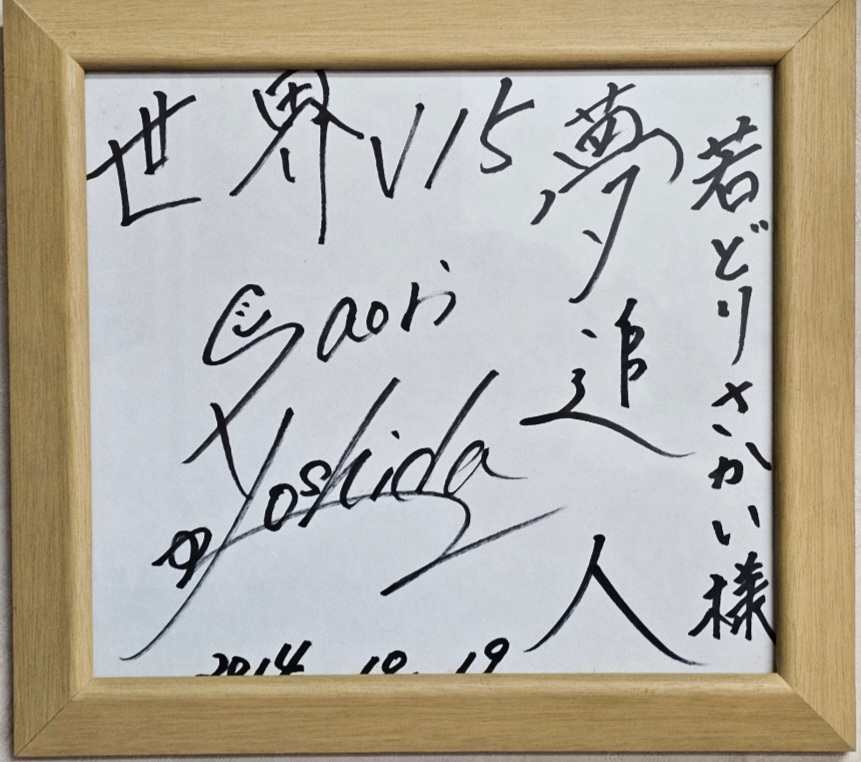 若どりさかい様
夢追人
世界V15
Saori
Yoshida
2014 10. 19